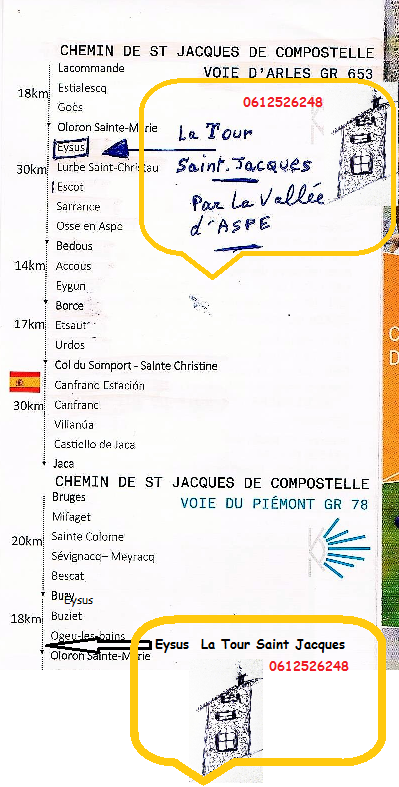 CHEMIN DE ST JACQUES DE COMPOSTELLE
VOIE D'ARLES GR 653
Lacommande
18km
Estialescq
Goès
Oloron Sainte-Marie
Eysus
30km
Lurbe Saint-Christau
Escot
Sarrance
Osse en Aspe
Bedous
14km
Accous
Eygun
Borce
17km
Etsaut
Urdos
Col du Somport - Sainte Christine
Canfranc Estación
30km
Canfranc
Villanúa
Castiello de Jaca
Jaca
0612526248
La Tour
Saint.Jacques
Par La Vallée
d'ASPE
CHEMIN DE ST JACQUES DE COMPOSTELLE
VOIE DU PIÉMONT GR 78
Bruges
Mifaget
20km
Sainte Colome
Sévignacq– Meyracq
Bescat
Buzy
Eysus
18km
Buziet
Ogeu-les-bains
Oloron Sainte-Marie
Eysus La Tour Saint Jacques
0612526248